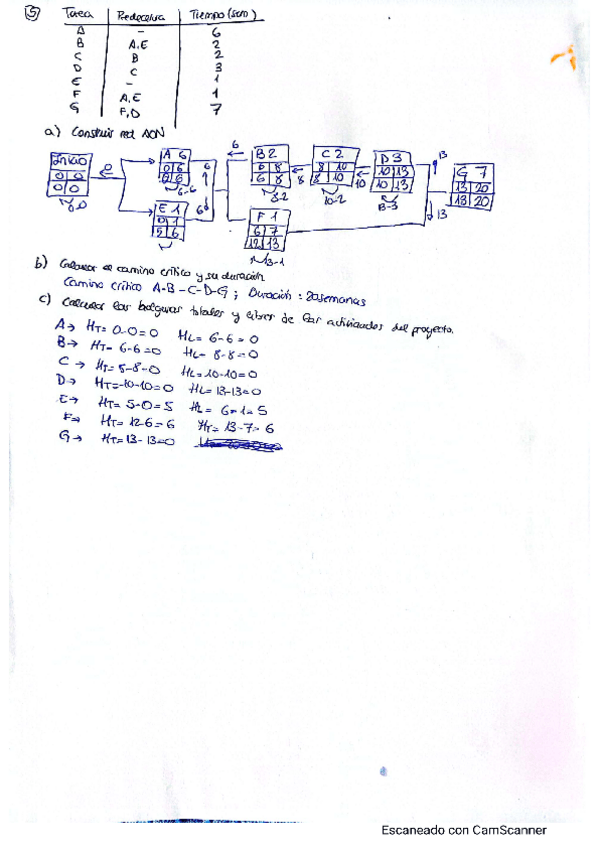 5 Tarea Predecesora Tiempo (sem)
A - 6
B A,E 2
C B 2
D C 3
E - 1
F A,E 1
G F,D 7
a) Construir red AON
Inicio 0 A 6 6 B 2 C 2 D 3 13 G 7
0 0 0 6 6 8 8 10 10 13 13 20
0 0 0 6 6 6 8 8 8 10 10 10 13 13 20
6-6 8-2 10-2 13-3 13
E 1 6 F 1
0 1 6 7
5 6 12 13
13-1
b) Calcular el camino crítico y su duración
Camino crítico A-B-C-D-G ; Duración : 20 semanas
c) Calcular las holguras totales y libres de las actividades del proyecto.
A → HT= 0-0=0 HL= 6-6=0
B → HT= 6-6=0 HL= 8-8=0
C → HT= 8-8=0 HL=10-10=0
D → HT=10-10=0 HL=13-13=0
E → HT= 5-0=5 HL= 6-1=5
F → HT= 12-6=6 HT= 13-7=6
G → HT=13-13=0
Escaneado con CamScanner